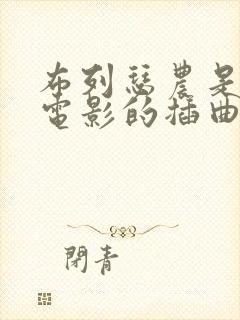 布列瑟農是
電影的插曲
閉青